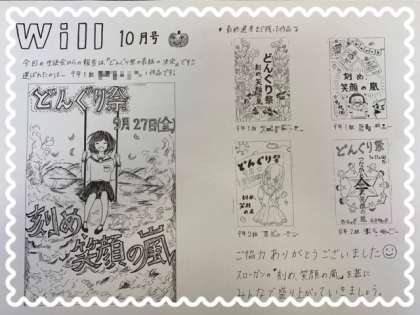 Will 10月号
今回の生徒会からの報告は、「どんぐり祭の表紙の決定」です。
選ばれたのは… 9年1組
作品です。
どんぐり祭
9月27日(金)
刻め
笑顔の嵐
*最終選考まで残った作品
どんぐり祭
刻め 笑顔の嵐
9年1組
刻め
笑顔の嵐
9年1組
どんぐり祭
刻め、
笑顔の嵐
9年2組
どんぐり祭
笑顔の嵐
ご協力ありがとうございました
スローガンの"刻め、笑顔の嵐"を基に
みんなで盛り上がっていきましょう。